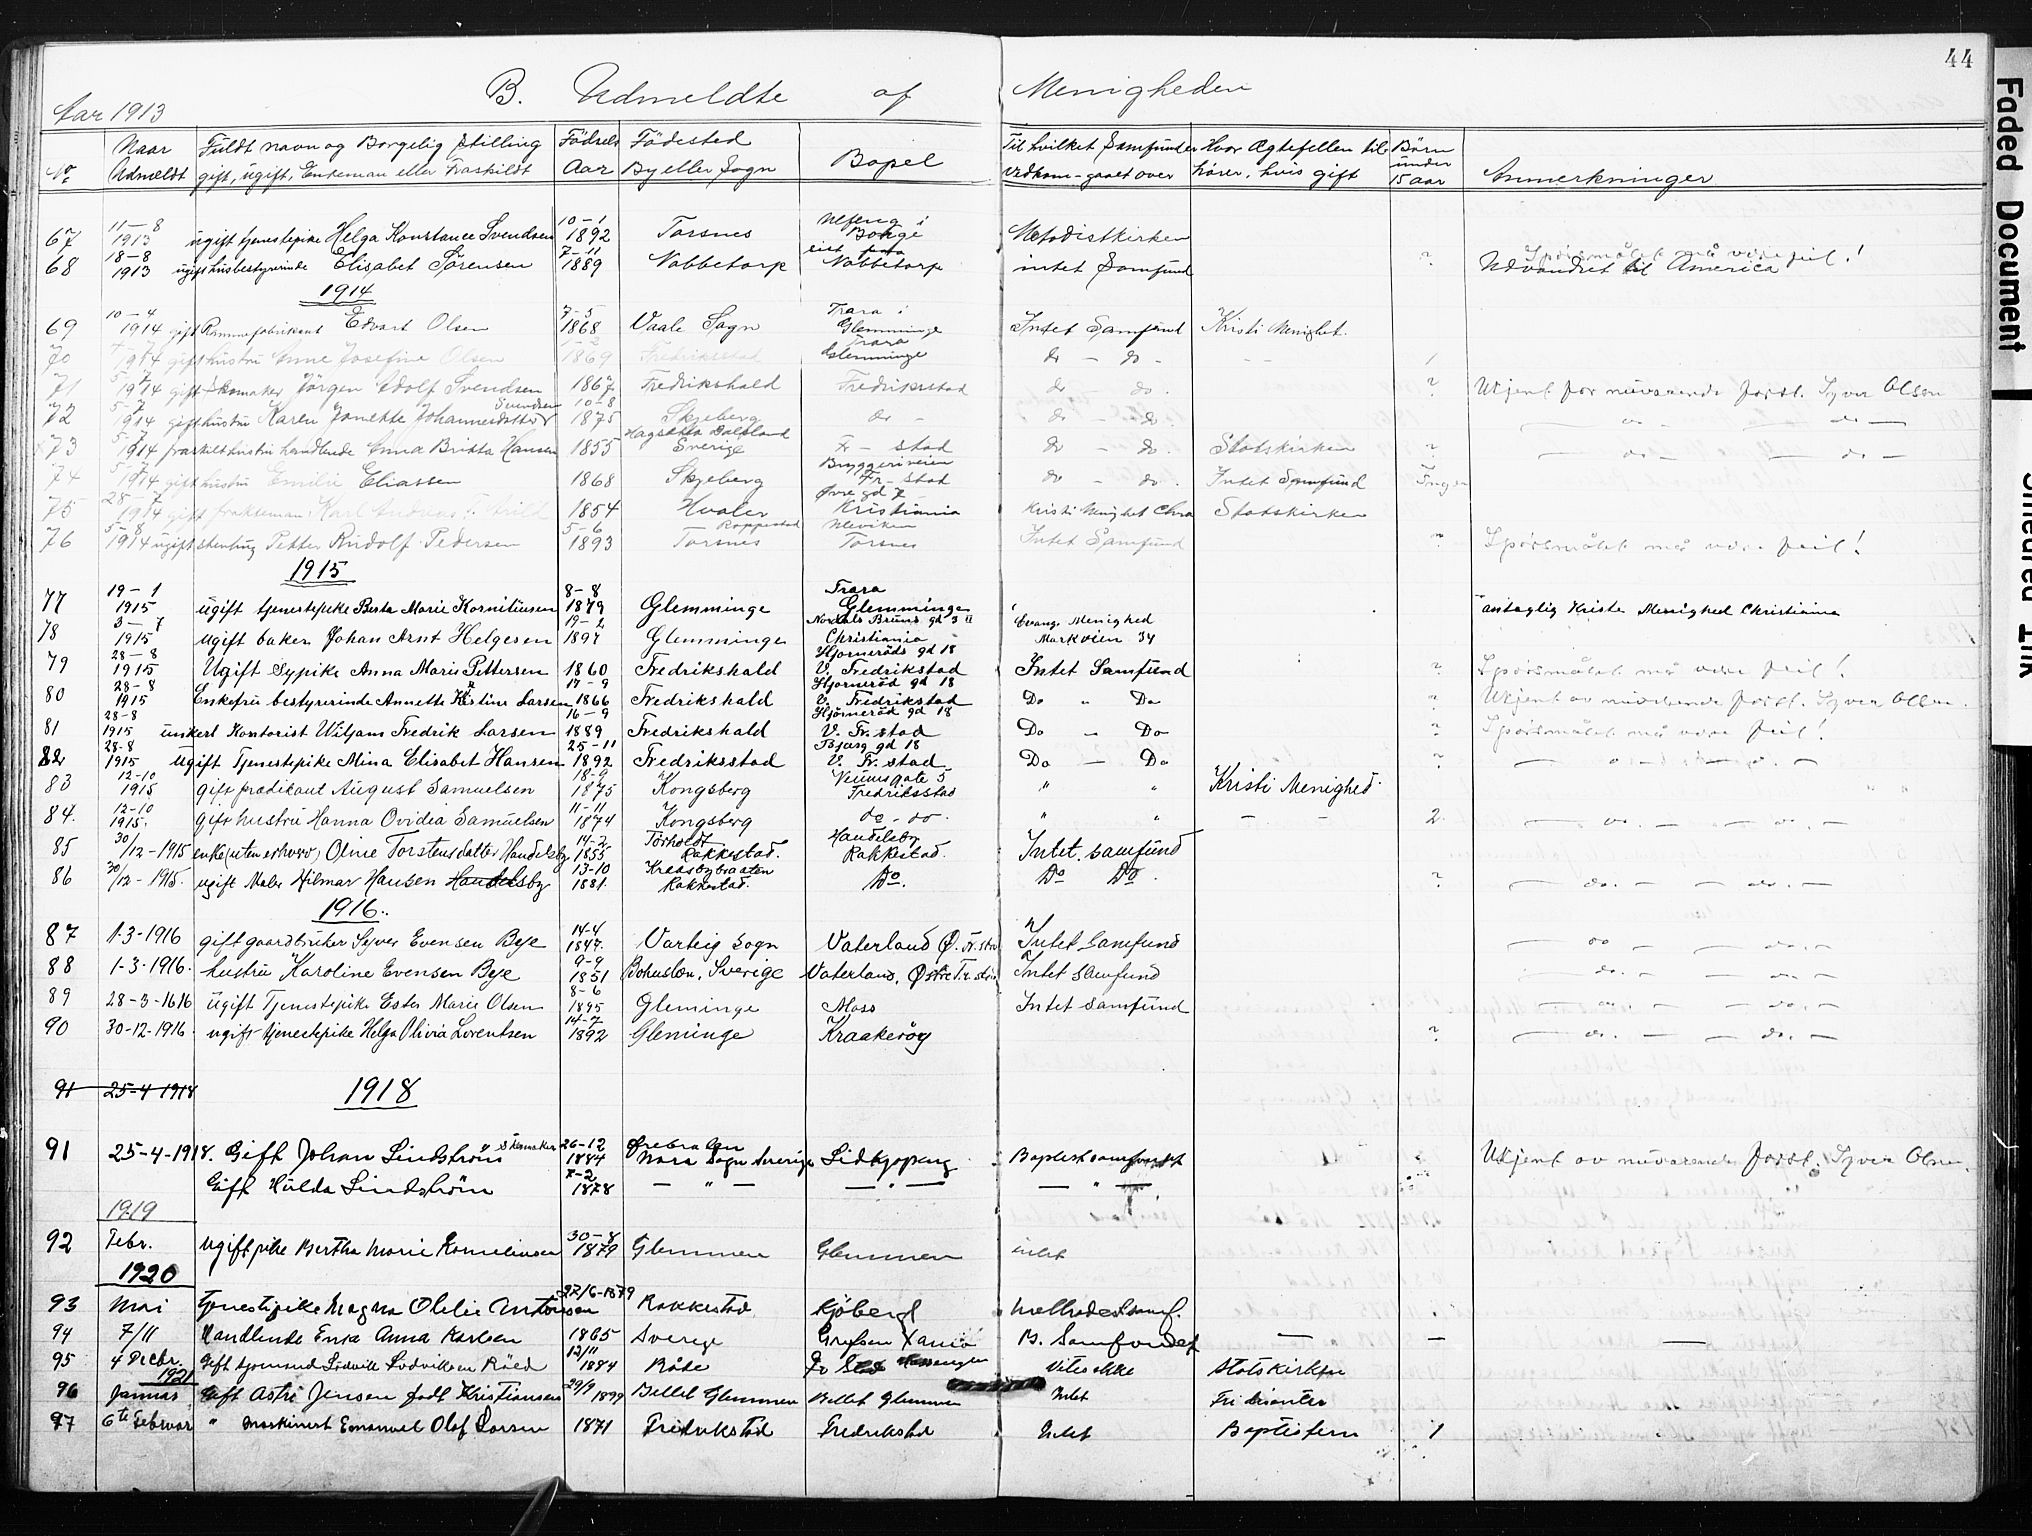 44
B. Udmeldte af Menigheden
Aar 1913
No. Naar Udmeldt Fuldt navn og Borgelig Stilling gift, ugift, Enkeman eller Fraskildt Födsels Aar Födested By eller Sogn Bopel Til hvilket Samfund vedkom. gaaet over Hvor Ægtefellen til hörer, hvis gift Börn under 15 aar Anmerkninger
67 11-8 1913 ugift tjenestepike Helga Konstance Svendsen 10-1 1892 Torsnes i Borge Metodistkirken
68 18-8 1913 ugift husbestyrerinde Elisabet Sörensen 7-11 1889 Nabbetorp Nabbetorp intet Samfund ? Spörsmålet må være feil! Udvandret til America
1914
69 10-4 1914 gift Rammefabrikant Edvart Olsen 7-5 1868 Vaale Sogn Trara i Glemminge Intet Samfund Kristi Menighet.
70 1914 gift hustru Anne Josefine Olsen 1869 Fredrikstad Trara Glemminge do - do - - - 1
71 5-7 1914 gift Skomaker Jörgen Adolf Svendsen 1867 Fredrikshald Fredriksstad do do. ? Ukjent for nuværende forst. Syver Olsen
72 5-7 1914 gift hustru Karen Janette Johannesdatter Svendsen 10-8 1875 Skjeberg do do - do - do - - do -
73 5-7 1914 fraskilt hustru handlende Anna Britta Hansen 1855 Dalsland Sverige Fr - stad do - do. Statskirken ? - do - - do -
74 5-7 1914 gift hustru Emilie Eliassen 1868 Skjeberg Bryggeriveien Fr - stad do - do. Intet Samfund Ingen
75 28-7 1914 gift Karl Andreas 1854 Hvaler Øvre gd 7 Kristiania Kristi Menighet Chra Statskirken
76 5-8 1914 ugift stenhug Petter Rudolf Pedersen 5-6 1893 Torsnes Uleviken Torsnes Intet Samfund ? Spörsmålet må være feil!
1915
77 19-1 1915 ugift tjenestepike Berta Marie Korneliusen 8-8 1879 Glemminge Trara Glemminge antaglig Kristi Menighed Christiania
78 3-7 1915 ugift baker Johan Arnt Helgesen 19-2 1897 Glemminge Nordals Bruns gd 3 II Christiania Evang. Menighed Markveien 34
79 28-8 1915 Ugift Sypike Anna Marie Pettersen 1860 Fredrikshald Hjorneröds gd 18 V. Fredrikstad Intet Samfund ? Spörsmålet må være feil!
80 28-8 1915 Enkefru bestyrerinde Annette Kristine Larsen 17-9 1866 Fredrikshald Hjorneröd gd 18 V. Fredrikstad Do " Do ? Ukjent av nuværende forst. Syver Olsen.
81 28-8 1915 unkerl Kontorist Wiljam Fredrik Larsen 16-9 1889 Fredrikshald Hjörneröd gd 18 V. Fr. stad Do - Do ? Spörsmålet må være feil!
82 28-8 1915 Ugift Tjenestepike Mina Elisabet Hansen 25-11 1892 Fredriksstad Bjerg gd 18 V. Fr. stad Do - Do ? - do - - do. -
83 12-10 1915 gift prædikant August Samuelsen 18-9 1875 Kongsberg Veumsgate 5 Fredriksstad " " Kristi Menighed. " "
84. 12-10 1915. gift hustru Hanna Ovidia Samuelsen 11-11 1874 Kongsberg do - do. " " - - 2. - do. - - do. -
85 30/12 - 1915 enke (uten erhverv) Oline Torstensdatter Handelsby 14-2 1855 Torholdt Rakkestad. Handelsby Rakkestad. Intet. samfund
86 30/12 - 1915. ugift Maler Hilmar Hansen Handelsby 13-10 1881. Krabsbybraaten Rakkestad. Do. Do Do. ? - do. - - do. -
1916.
87 1-3-1916 gift gaardbruker Syver Evensen Beje 14-4 1847. Varteig sogn Vaterland Ø. Fr. stad Intet Samfund - do - - do. -
88 1-3-1916. hustru Karoline Evensen Beje 9-9 1851 Bohuslen, Sverige Vaterland, Østre Fr. stad Intet samfund - do. - - do. -
89 28-3-1616 ugift Tjenestepike Ester Marie Olsen 8-6 1895 Gleminge Moss Intet samfund - do. - - do. -
90 30-12-1916. ugift tjenestepike Helga Olivia Lorentsen 14-7 1892 Gleminge Kraakeröy ? - do. - - do. -
91 25-4-1918 1918
91 25-4-1918. Gift Johan Lindström Skomaker 26-12 1884 Ørebro len Nora Sogn Sverige Lidkjøping Baptistsamfundet Ukjent av nuværende forst. Syver Olsen.
Gift Hulda Lindström 7-2 1878 - " - - " - - " -
1919
92 Febr. ugift pike Bertha Marie Korneliusen 30-8 1879 Glemmen Glemmen intet
1920
93 Mai Tjenestepike Magna Olelie Antonsen 27/6-1879 Rakkestad Kjöberg Methodestsamf.
94 7/11 Handlende Enke Anna Karlsen 1865 Sverge B. Samfundet - - -
95 4 Decbr. Gift Ludvik Ludviksen Röed 12/11 1884 Råde Fr Stad Vites ikke Statskirken
1921
96 Januar Gift Astri Jensen født Kristiansen 29/9 1899 Bellet Glemmen Bellet Glemmen Intet Fri disenter
97 6te Februar " Maskinert Emanuel Olaf Larsen 1871 Fredrikstad Fredrikstad Intet Baptistern 1
Faded Document
Smeared Ink